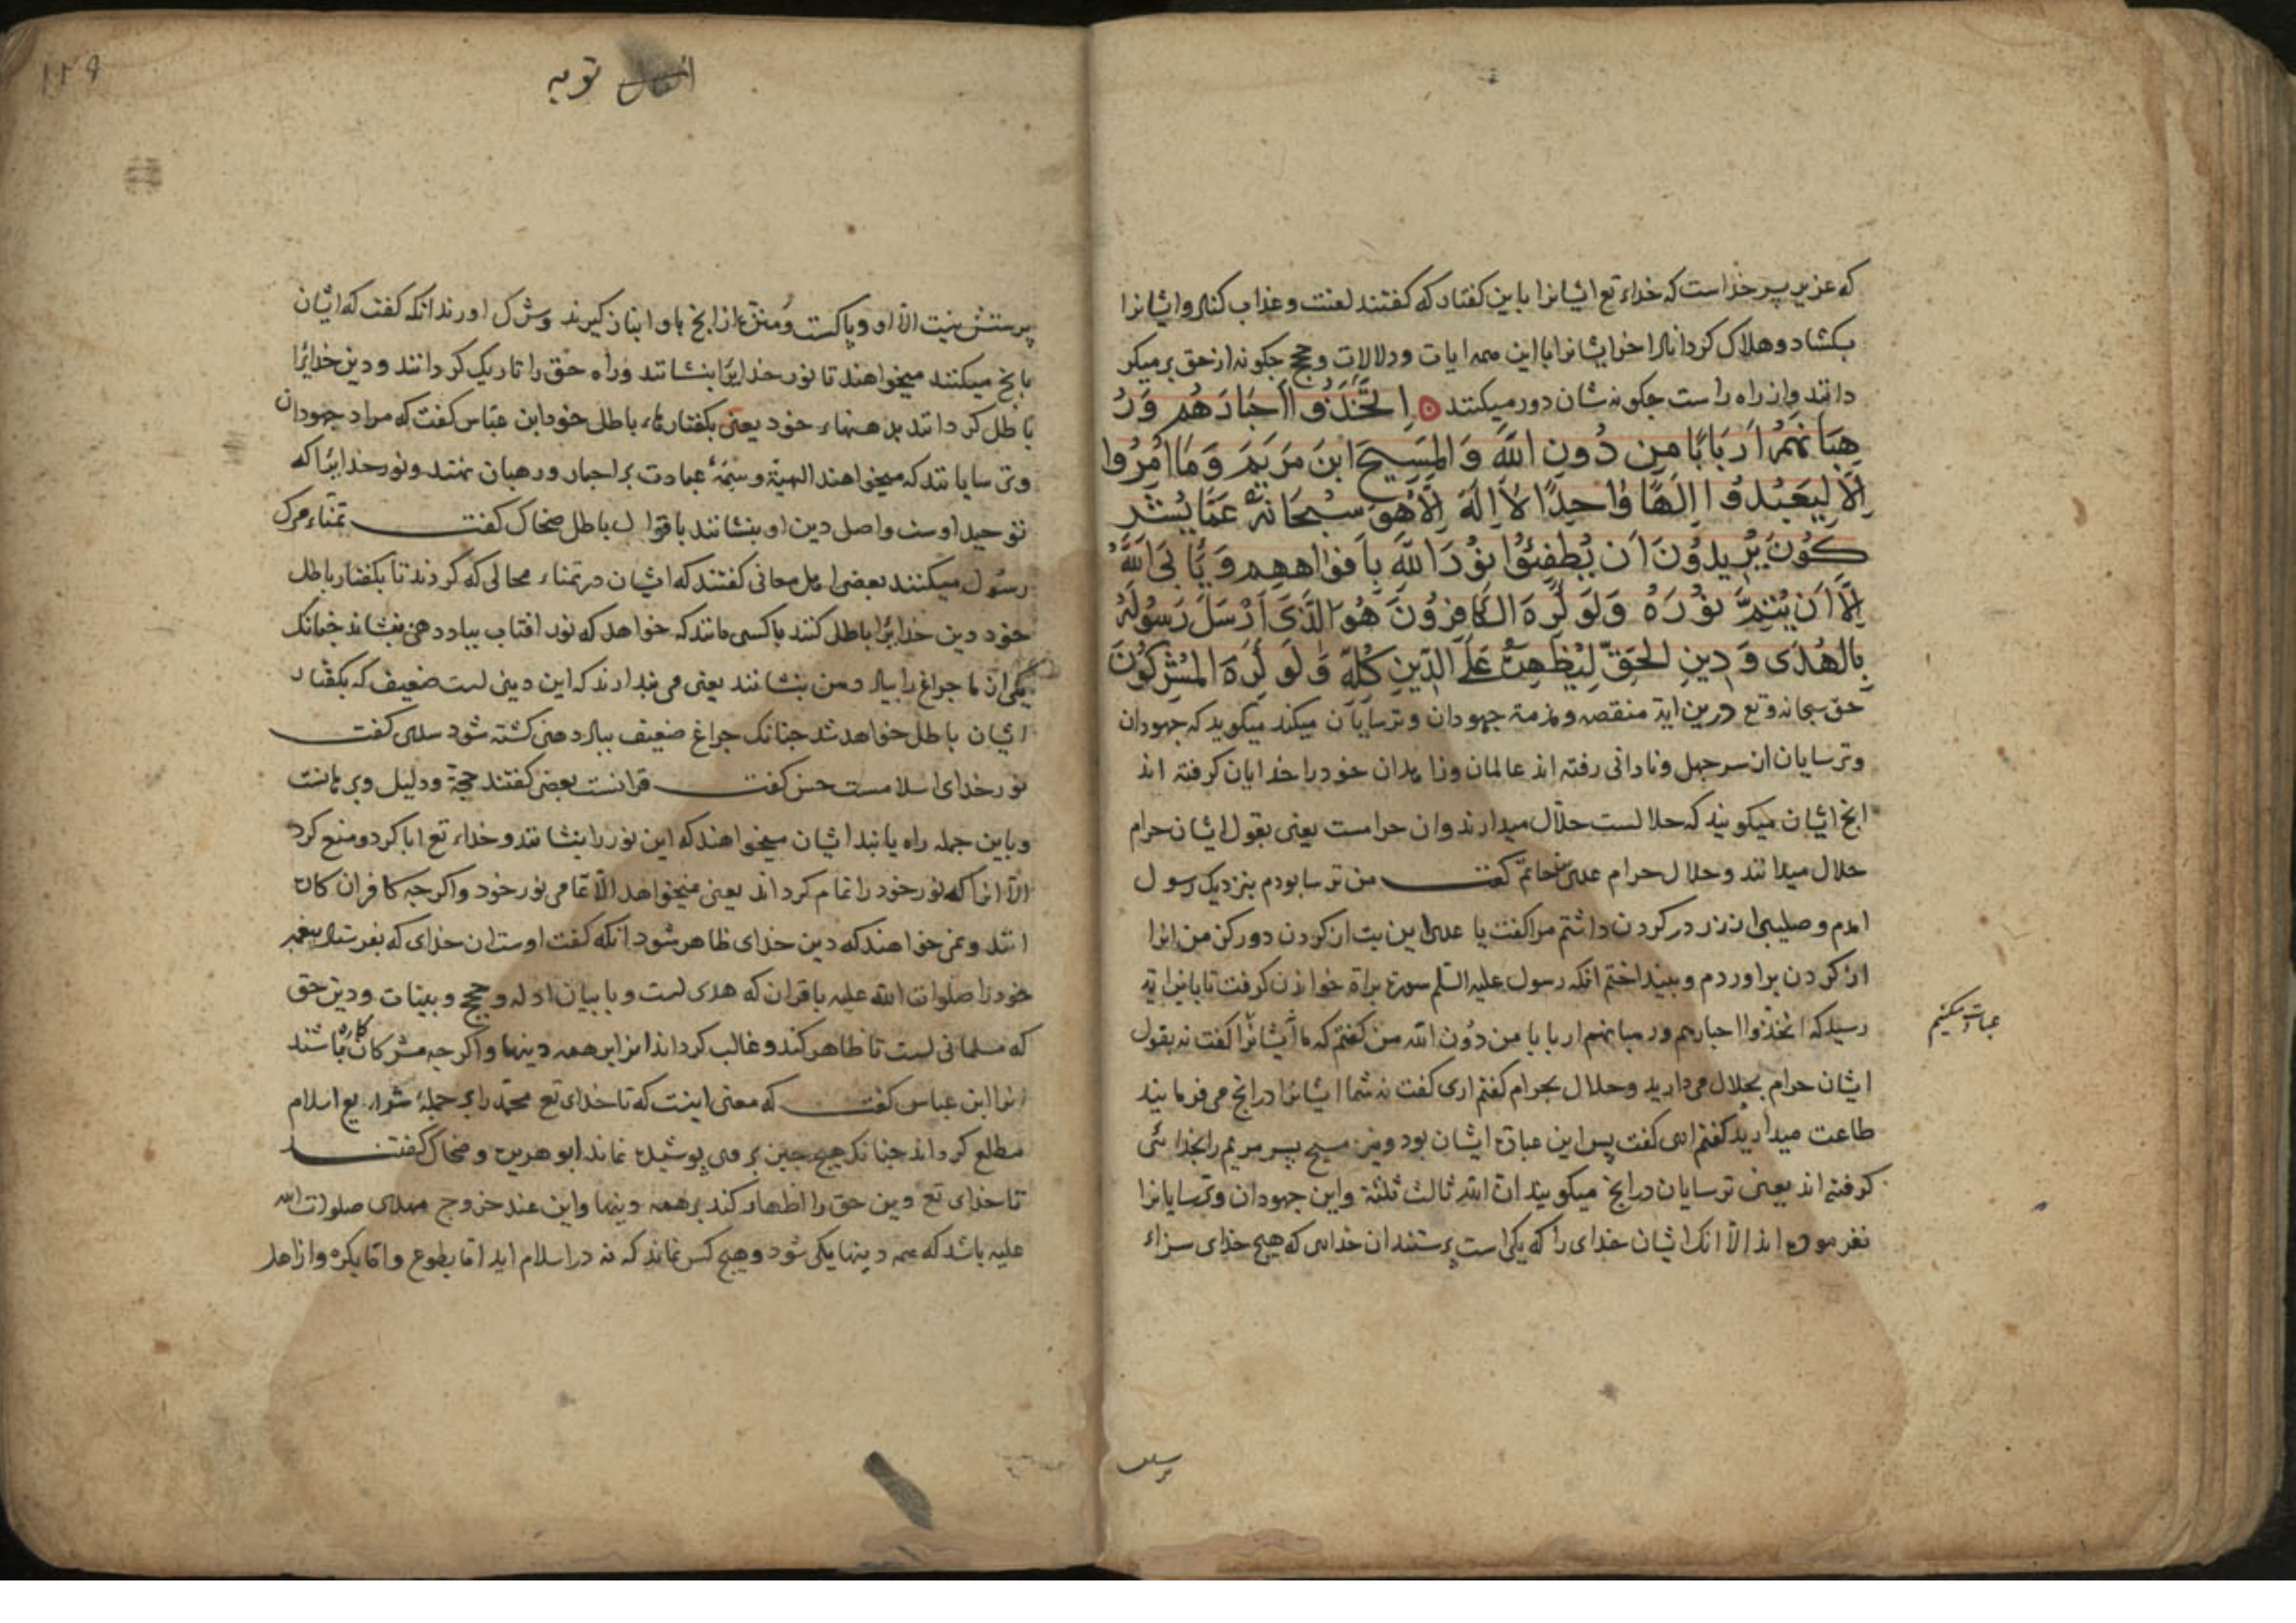 که عزیر پسر خداست که خداء تع ایشانرا باین کفتار که کفتند لعنت و عذاب کناد و ایشانرا
بکشاد و هلاک کرداناد اخر ایشانرا با این همه ایات و دلالات و حجج جکونه از حق برمیکر
دانند و از راه راست جکونه شان دور میکنند اِتَّخَذُوا اَحبَارَهُم وَرُ
هبَانَهُم اَربَابًا مِن دُونِ اللّٰهِ وَالمَسِیحَ ابنَ مَریَمَ وَمَا اُمِرُوا
اِلَّا لِیَعبُدُوا اِلَهًا وٰاحِدًا لَا اِلَهَ اِلَّا هُوَ سُبحَانَهُ عَمَّا یُشرِ
کُونَ یُرِیدُونَ اَن یُطفِئُوا نُورَ اللّٰهِ بِاَفوٰاهِهِم وَیَابَی اللّٰهُ
اِلَّا اَن یُتِمَّ نُورَهُ وَلَو کَرِهَ الکَافِرُونَ هُوَ الَّذِی اَرسَلَ رَسُولَهُ
بِالهُدَی وَدِینِ الحَقِّ لِیُظهِرَهُ عَلَی الدِّینِ کُلِّهِ وَلَو کَرِهَ المُشرِکُونَ
حق سبحانه وتع درین ایة منقصه و مذمة جهودان و ترسایان میکند میکوید که جهودان
و ترسایان از سر جهل و نادانی رفته اند عالمان و زاهدان خود را خدایان کرفته اند
انج ایشان میکویند که حلالست حلال میدارند وان حرامست یعنی بقول ایشان حرام
حلال میدانند و حلال حرام عدی حاتم کفت من ترسا بودم بنزدیک رسول
امدم و صلیبی از زر در کردن داشتم مرا کفت یا عدی این بت از کردن دور کن من انرا
از کردن براوردم و بینداختم انکه رسول علیه السلم سورة براة خواندن کرفت تا باین ایة
رسید که اتخذوا احبارهم و رهبانهم اربابا من دون الله من کفتم که ما ایشانرا کفت نه بقول
عبادت نمیکنیم
ایشان حرام بحلال می دارید و حلال بحرام کفتم اری کفت نه شما ایشانرا درانج می فرمایند
طاعت میدارید کفتم اری کفت پس این عبادة ایشان بود و نیز مسیح پسر مریم را بخدائی
کرفته اند یعنی ترسایان درانج میکویند ان الله ثالث ثلثة و این جهودان و ترسایانرا
نفرموده اند الا انک ایشان خدای را که یکی است پرستند ان خدای که هیچ خدای سزاء
انفال توبه
۱۲۹
پرستش نیست الا او و پاکست و منزه از انج باو انباز کیرند و شرک اورند انکه کفت که ایشان
بانج میکنند میخواهند تا نور خدایرا بنشانند و راه حق را تاریک کردانند و دین خدایرا
باطل کردانند بدهنهاء خود یعنی بکفتارهاء باطل خود ابن عباس کفت که مراد جهودان
و ترسایانند که میخواهند الهیة و سمة عبادت بر احبار و رهبان نهند و نور خدایرا که
توحید اوست و اصل دین او بنشانند باقوال باطل ضحاک کفت تمناء مرک
رسول میکنند بعضی اهل معانی کفتند که ایشان در تمناء محالی که کردند تا بکفتار باطل
خود دین خدایرا باطل کنند باکسی مانند که خواهد که نور افتاب بباد دهن بنشاند جنانک
یکی از ما جراغ را بباد دهن بنشانند یعنی می بندارند که این دینی است ضعیف که بکفتار
ایشان باطل خواهد شد جنانک جراغ ضعیف بباد دهنی کشته شود سدی کفت
نور خدای اسلامست حسن کفت قرانست بعضی کفتند حجة و دلیل و برهانست
و باین جمله راه یابند ایشان میخواهند که این نور را بنشانند و خداء تع ابا کرد و منع کرد
الا انرا که نور خود را تمام کرداند یعنی نمیخواهد الا تمامی نور خود و اکر جه کافران کاره
انند و نمی خواهند که دین خدای ظاهر شود انکه کفت اوست ان خدای که بفرستاد بیغمبر
خود را صلوات الله علیه باقران که هدی است و با بیان ادله و حجج و بینات و دین حق
که مسلمانی است تا ظاهر کند و غالب کرداند انرا بر همه دینها و اکر جه مشرکان کاره باشند
انرا ابن عباس کفت که معنی اینست که تا خدای تع محمد را بر جملهٔ شرایع اسلام
مطلع کرداند جنانک هیچ جیز بر وی پوشیده نماند ابو هریره و ضحاک کفتند
تا خدای تع دین حق را اظهار کند بر همه دینها و این عند خروج مهدی صلوات الله
علیه باشد که همه دینها یکی شود و هیچ کس نماند که نه در اسلام اید اما بطوع و اما بکره و از اهل